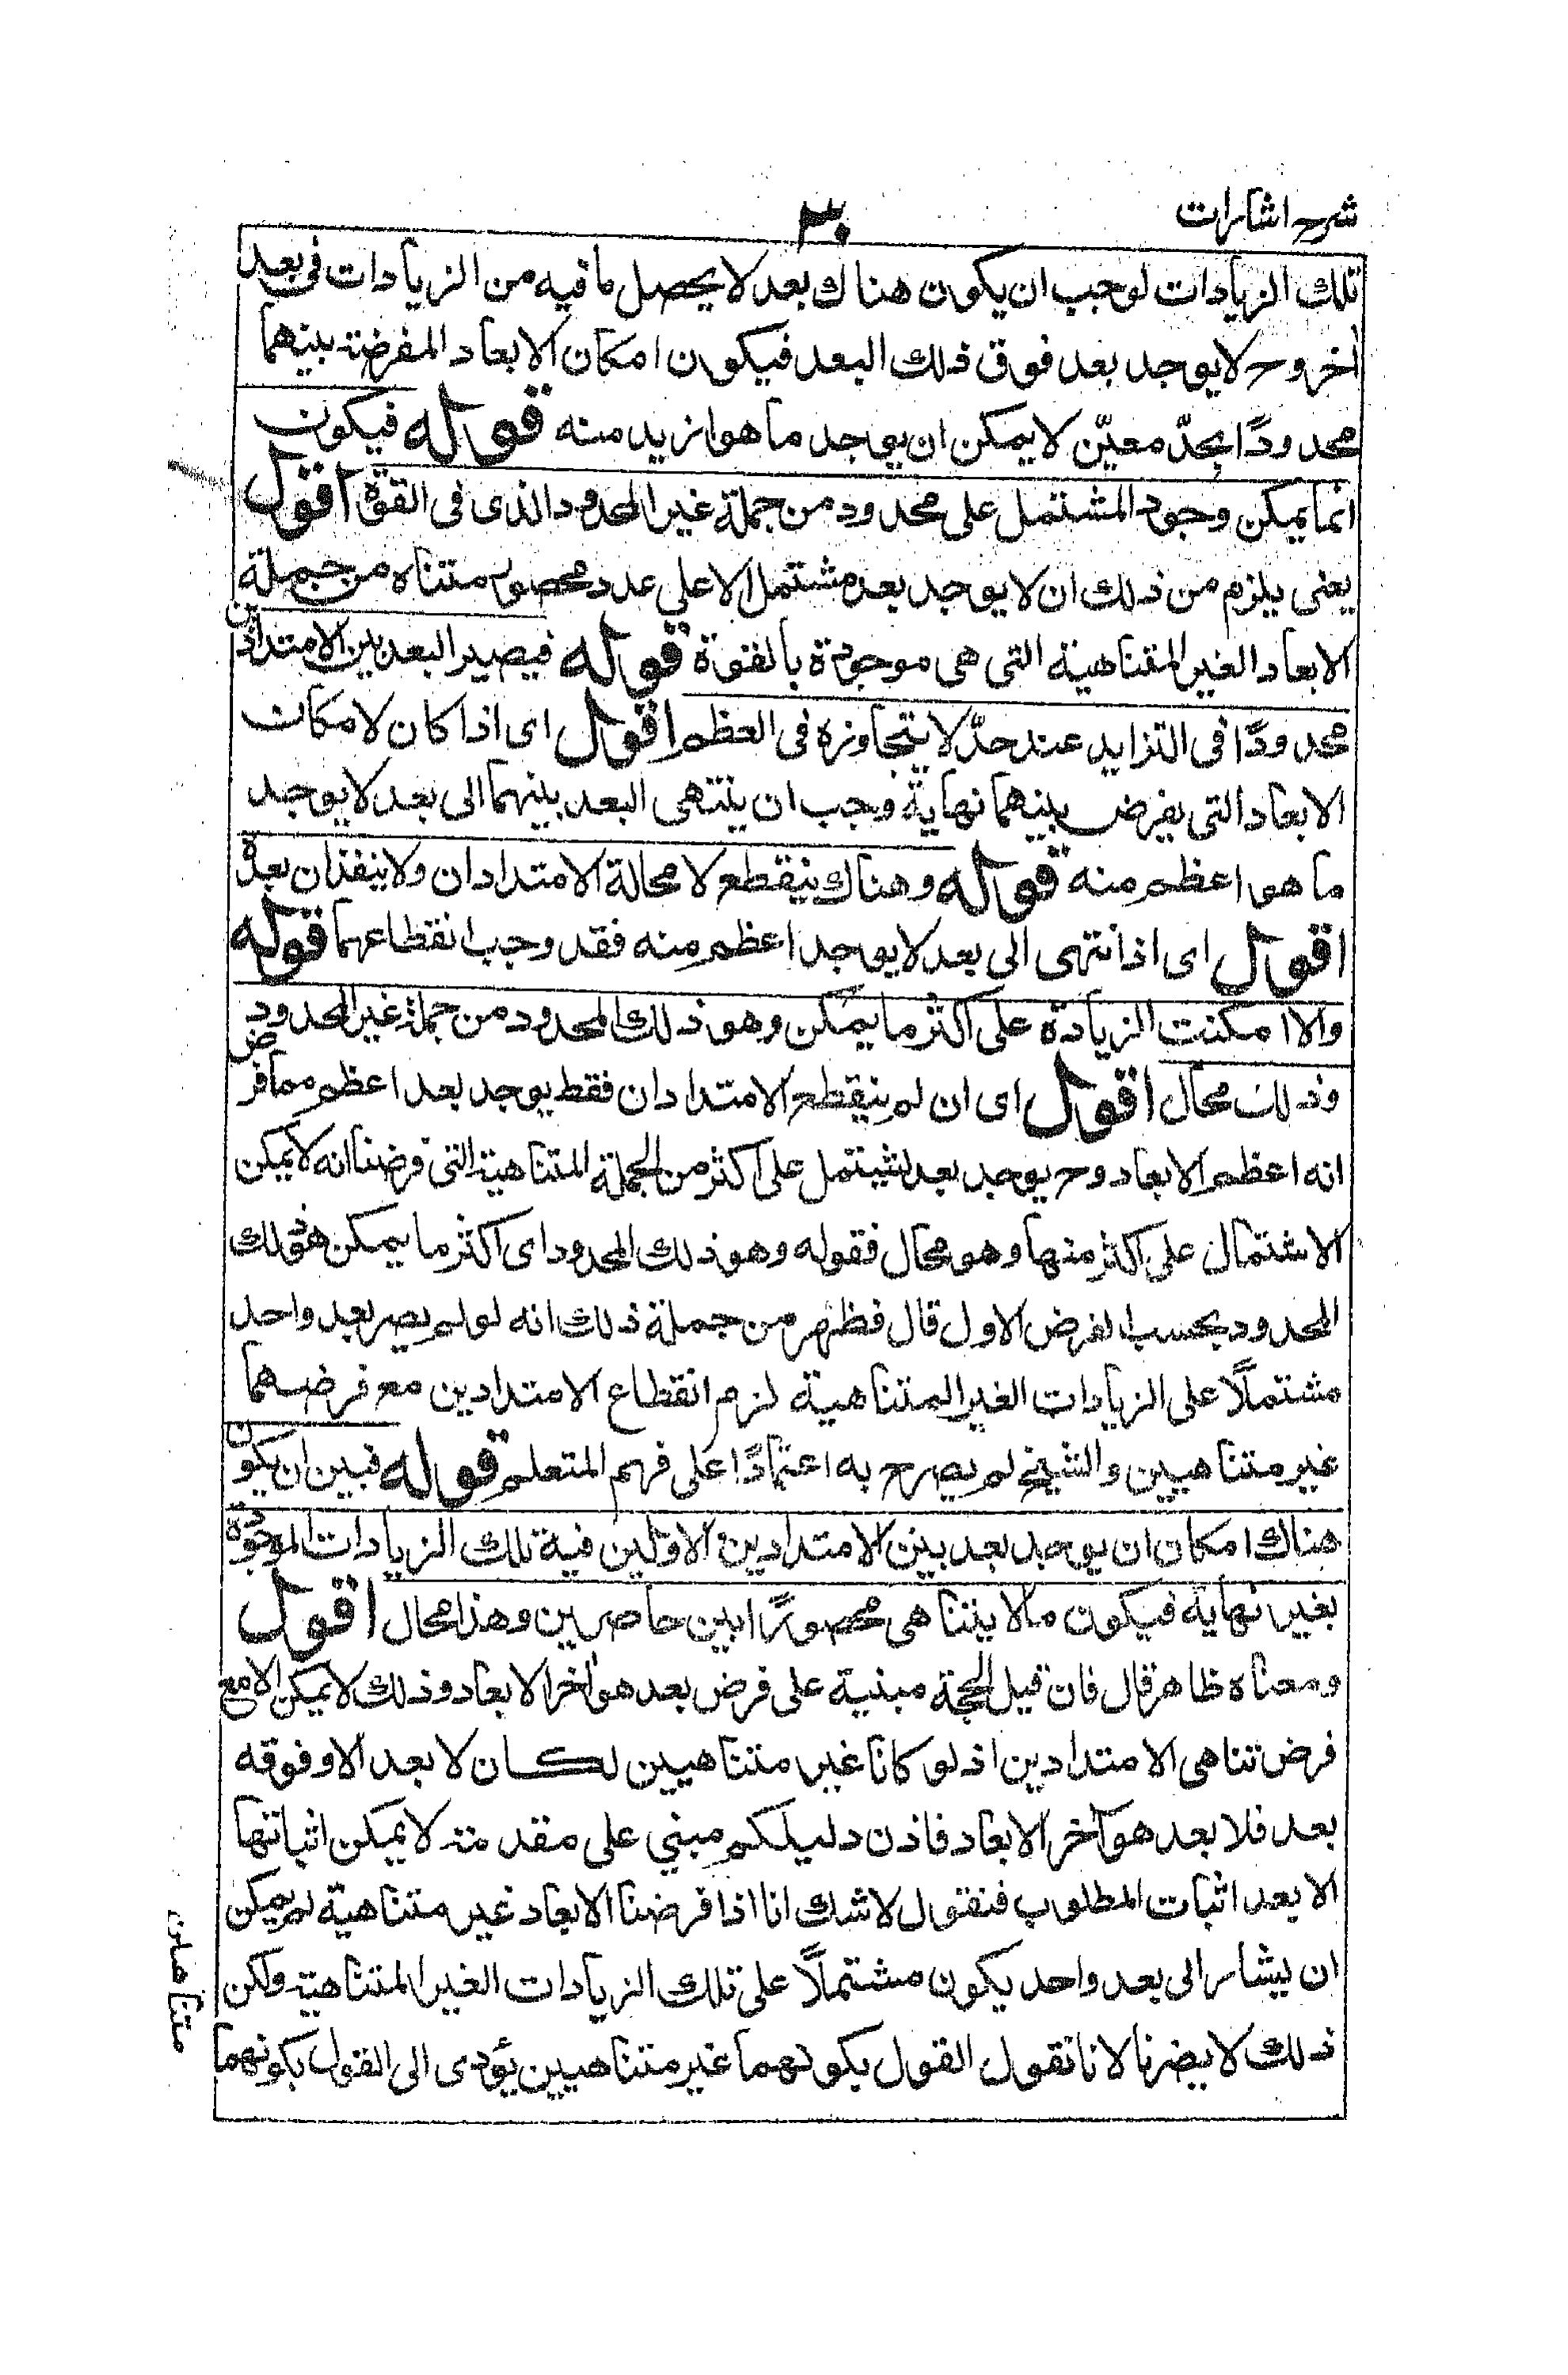 شرح اشارات
٣٠
تلك الزيادات لوجب ان يكون هناك بعد لا يحصل ما فيه من الزيادات فى بعد
اخر وح لا يوجد بعد فوق ذلك البعد فيكون امكان الابعاد المفرضة بينهما
محدودًا بحدّ معيّن لا يمكن ان يوجد ما هو ازيد منه قوله فيكون
انما يمكن وجود المشتمل على محدود من جملة غير المحدود الذى فى القوّة اقول
يعنى يلزم من ذلك ان لا يوجد بعد مشتمل الا على عدد محصور متناه من جملة
الابعاد الغير المتناهية التى هى موجودة بالقوة قوله فيصير البعد بين الامتدادين
محدودًا فى التزايد عند حدّ لا يتجاوزه فى العظم اقول اى اذا كان لامكان
الابعاد التى يفرض بينهما نهاية وجب ان ينتهى البعد بينهما الى بعد لا يوجد
ما هو اعظم منه قوله وهناك ينقطع لا محالة الامتدادان ولا ينفذان بعده
اقول اى اذا انتهى الى بعد لا يوجد اعظم منه فقد وجب انقطاعهما قوله
والا امكنت الزيادة على اكثر ما يمكن وهو ذلك المحدود من جملة غير المحدود
وذلك محال اقول اى ان لم ينقطع الامتدادان فقط يوجد بعد اعظم مما فرض
انه اعظم الابعاد وح يوجد بعد يشتمل على اكثر من الجملة المتناهية التى فرضنا انه لا يمكن
الاشتمال على اكثر منها وهو محال فقوله وهو ذلك المحدود اى اكثر ما يمكن هو ذلك
المحدود بحسب الفرض الاول قال فظهر من جملة ذلك انه لو لم يصر بعد واحد
مشتملًا على الزيادات الغير المتناهية لزم انقطاع الامتدادين مع فرضهما
غير متناهيين والشيخ لم يصرح به اعتمادًا على فهم المتعلم قوله فبين ان يكون
هناك امكان ان يوجد بعد بين الامتدادين الاوّلين فيه تلك الزيادات الموجودة
بغير نهاية فيكون ما لا يتناهى محصورًا بين حاصرين وهذا محال اقول
ومعناه ظاهر قال فان قيل الحجة مبنية على فرض بعد هو اخر الابعاد وذلك لا يمكن الا مع
فرض تناهى الامتدادين اذ لو كانا غير متناهيين لكان لا بعد الا وفوقه
بعد فلا بعد هو آخر الابعاد فاذن دليلكم مبني على مقدمة لا يمكن اثباتها
الا بعد اثبات المطلوب فنقول لا شك انا اذا فرضنا الابعاد غير متناهية لم يمكن
ان يشار الى بعد واحد يكون مشتملًا على تلك الزيادات الغير المتناهية ولكن
ذلك لا يضرنا لانا نقول القول بكونهما غير متناهيين يؤدى الى القول بكونهما
متناهيان